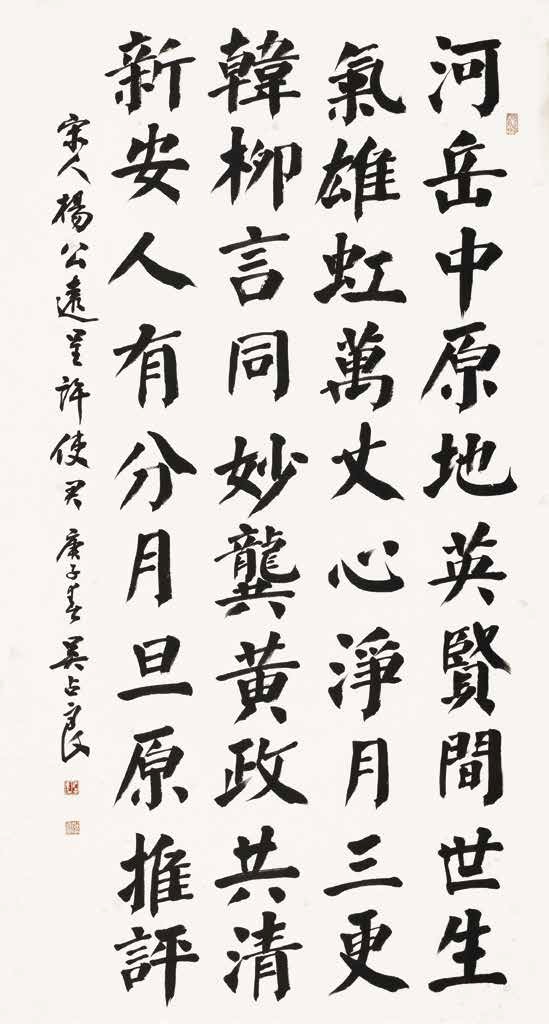 河岳中原地英賢間世生
氣雄虹萬丈心淨月三更
韓柳言同妙龔黄政共清
新安人有分月旦原推評
宋人楊公遠呈許使君 庚子春 吴占良